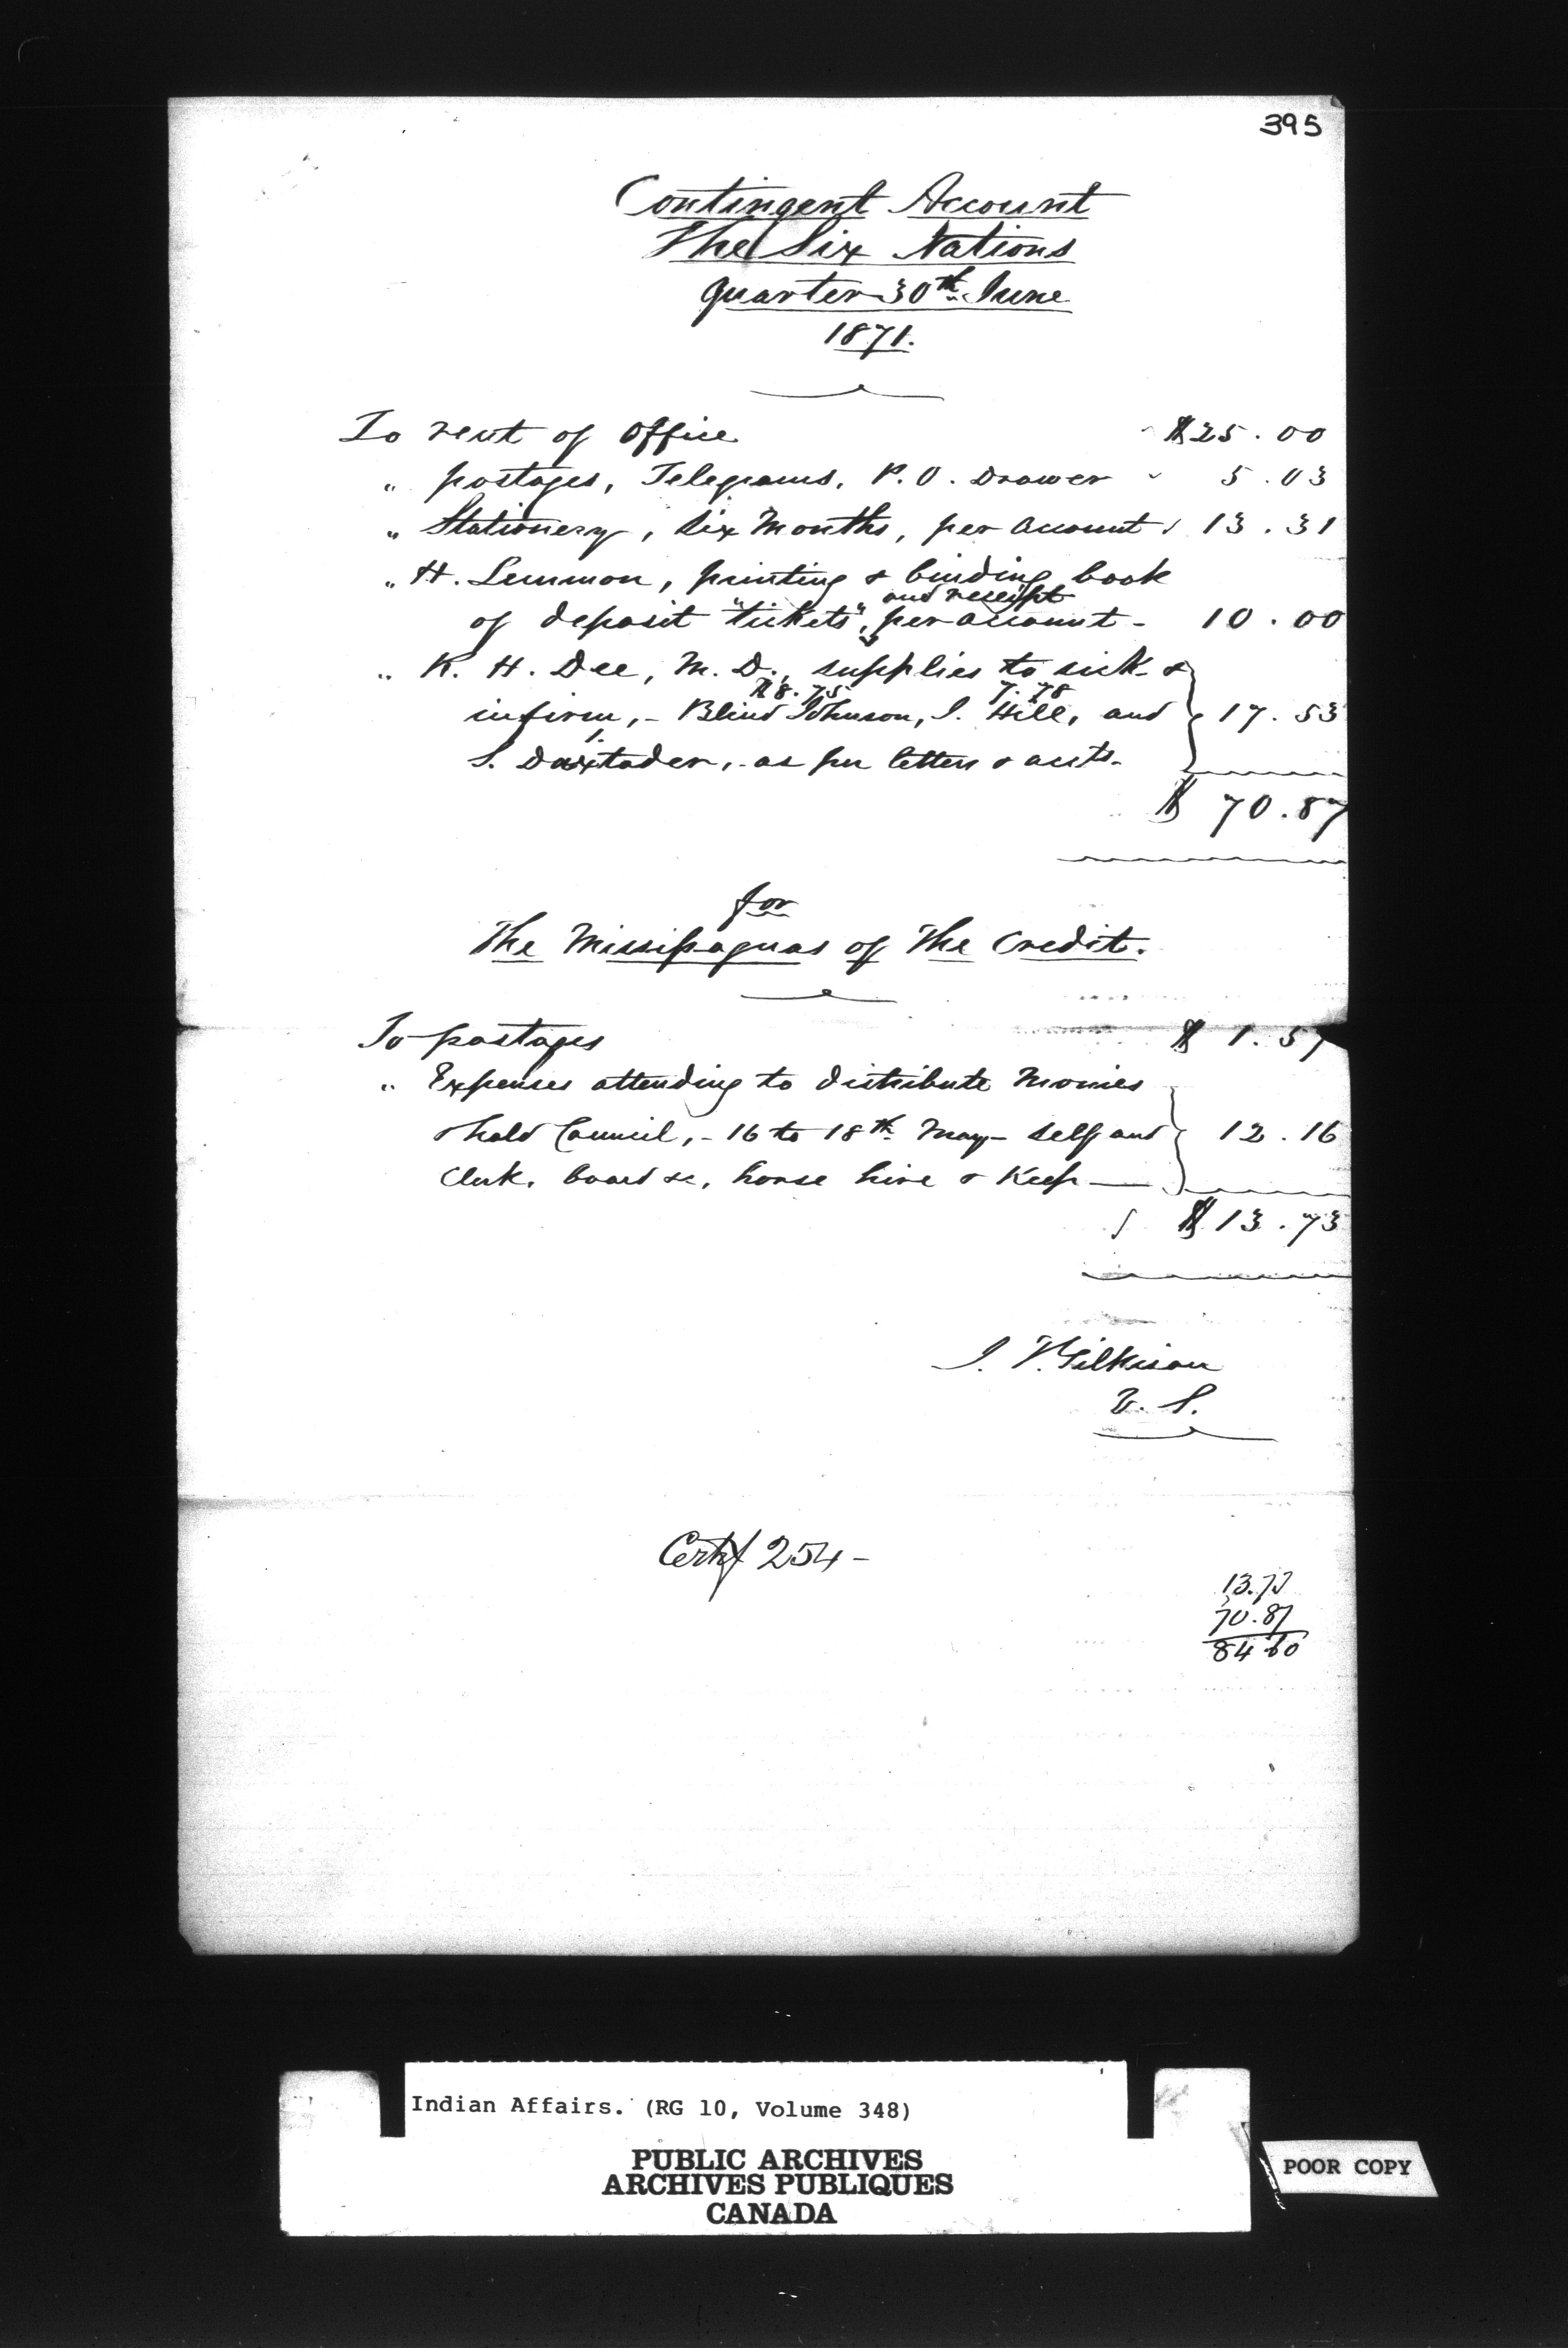 395
Contingent Account
The Six Nations
Quarter 30th June
1871.
To rent of office $25.00
" postages, Telegrams, P.O. Drawer 5.03
" Stationery, Six Months, per account 13.31
" H. Lemmon, printing & binding book
of deposit "tickets", and receipt per account - 10.00
" R. H. Dee, M.D., supplies to sick &
$8.75 7.78
infirm, - Blind Johnson, J. Hill, and 17.53
1.
S. Doxtader, - as per letters & accts.
$ 70.87
for
The Missisaguas of The Credit.
To postages $ 1.57
" Expenses attending to distribute Monies
& hold Council, - 16 to 18th May - self and 12.16
Clerk, board &c, horse hire & Keep —
$ 13.73
J. T. Gilkison
V. S.
Certif 254 -
13.73
70.87
84 60
Indian Affairs. (RG 10, Volume 348)
PUBLIC ARCHIVES
ARCHIVES PUBLIQUES
CANADA
POOR COPY